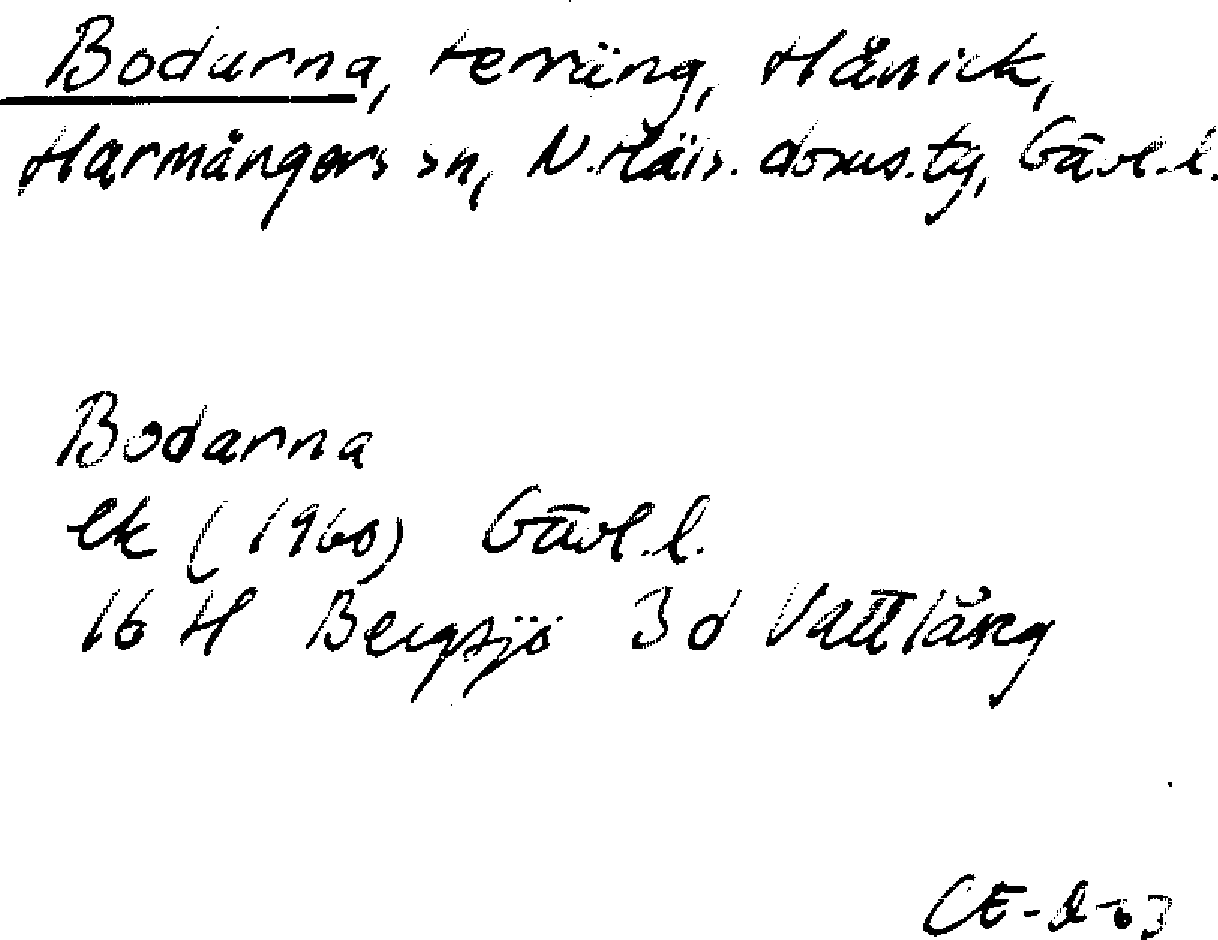 Bodarna, terräng, Hånick,
Harmångers sn, N. Häls. doms.tg, Gävl.l.
Bodarna
ek (1960) Gävl.l.
16 H Bergsjö 3d Vattlång